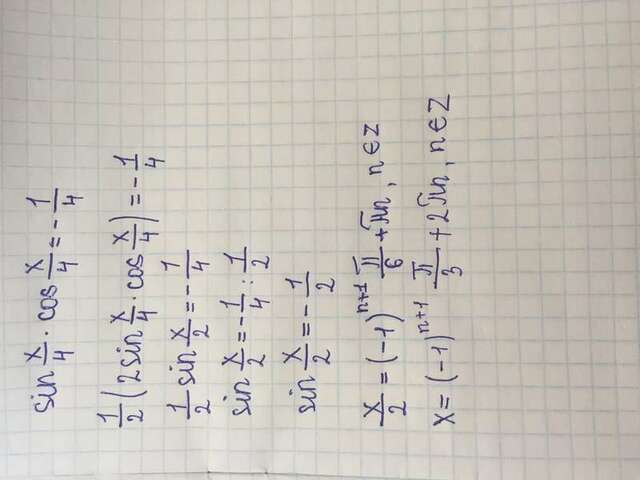 sin x/4 · cos x/4 = -1/4
1/2 (2 sin x/4 · cos x/4) = -1/4
1/2 sin x/2 = -1/4
sin x/2 = -1/4 : 1/2
sin x/2 = -1/2
x/2 = (-1)^{n+1} π/6 + πn, n ∈ Z
x = (-1)^{n+1} π/3 + 2πn, n ∈ Z